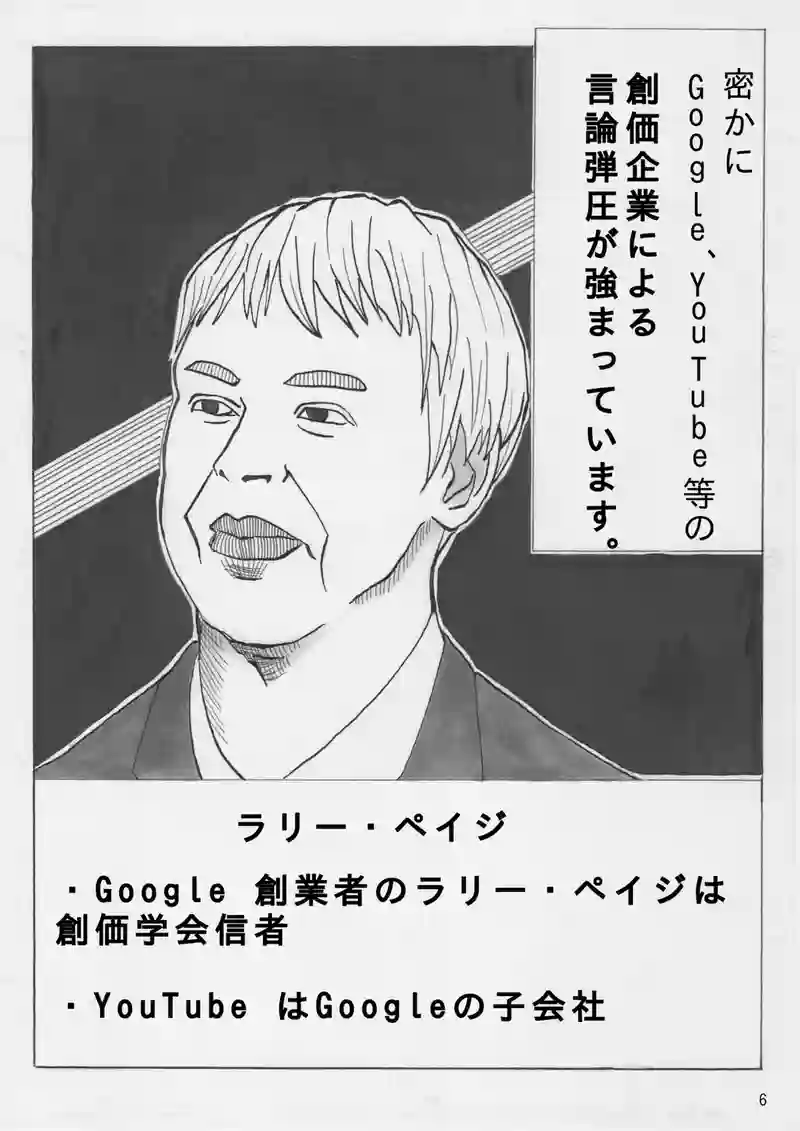 密かに
Google、YouTube等の
創価企業による
言論弾圧が強まっています。
ラリー・ペイジ
・Google 創業者のラリー・ペイジは
創価学会信者
・YouTube はGoogleの子会社
6